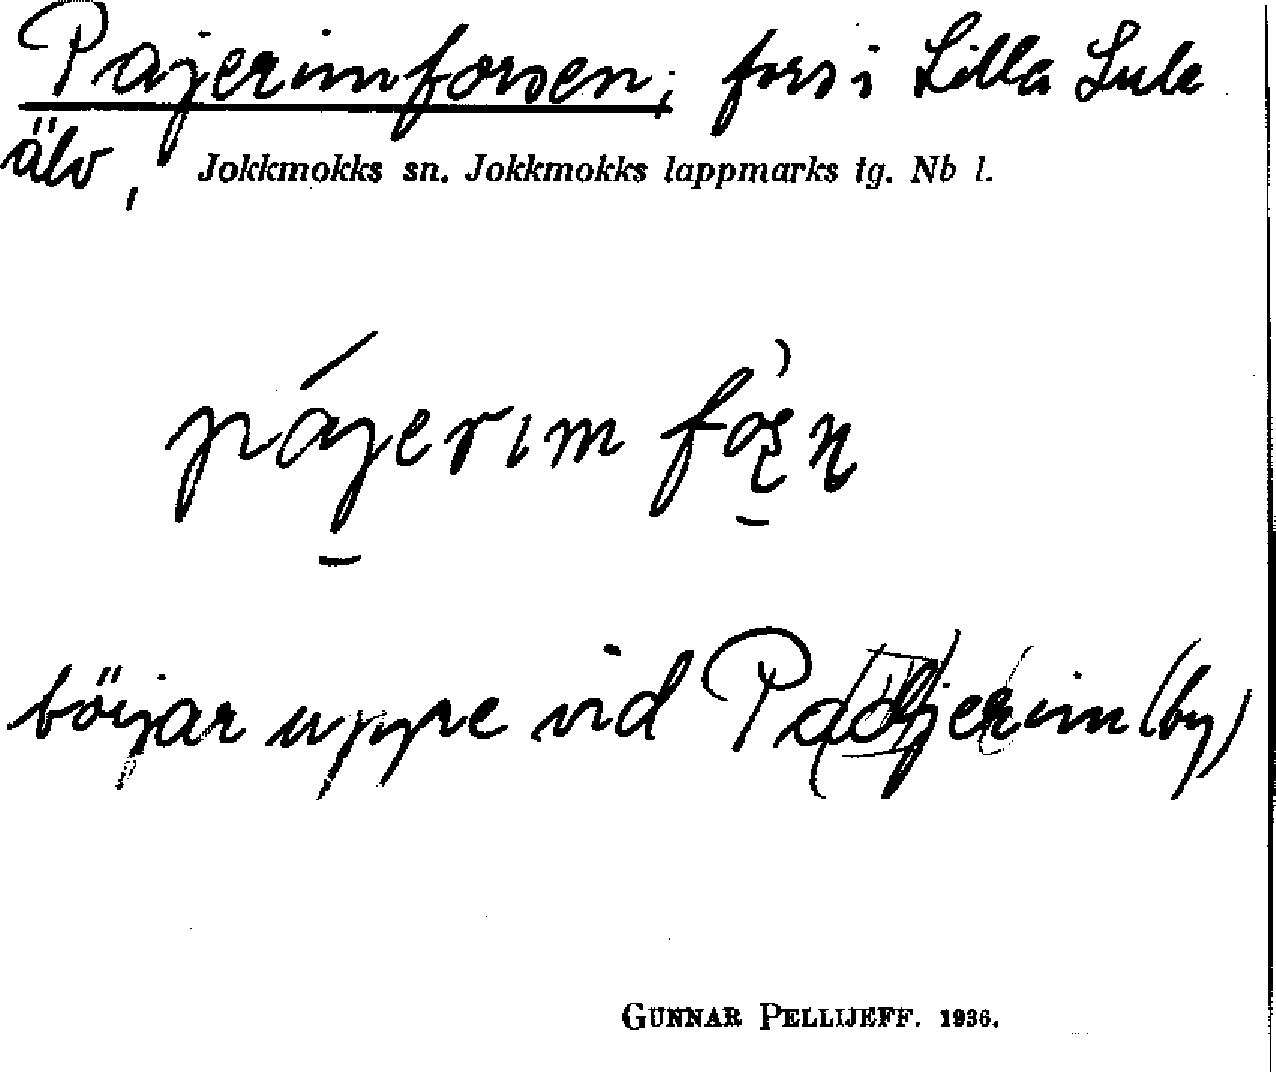 Pajerimforsen; fors i Lilla Lule
älv, Jokkmokks sn. Jokkmokks lappmarks tg. Nb l.
pájerim
börjar uppe vid Padjerim (by)
GUNNAR PELLIJEFF. 1936.